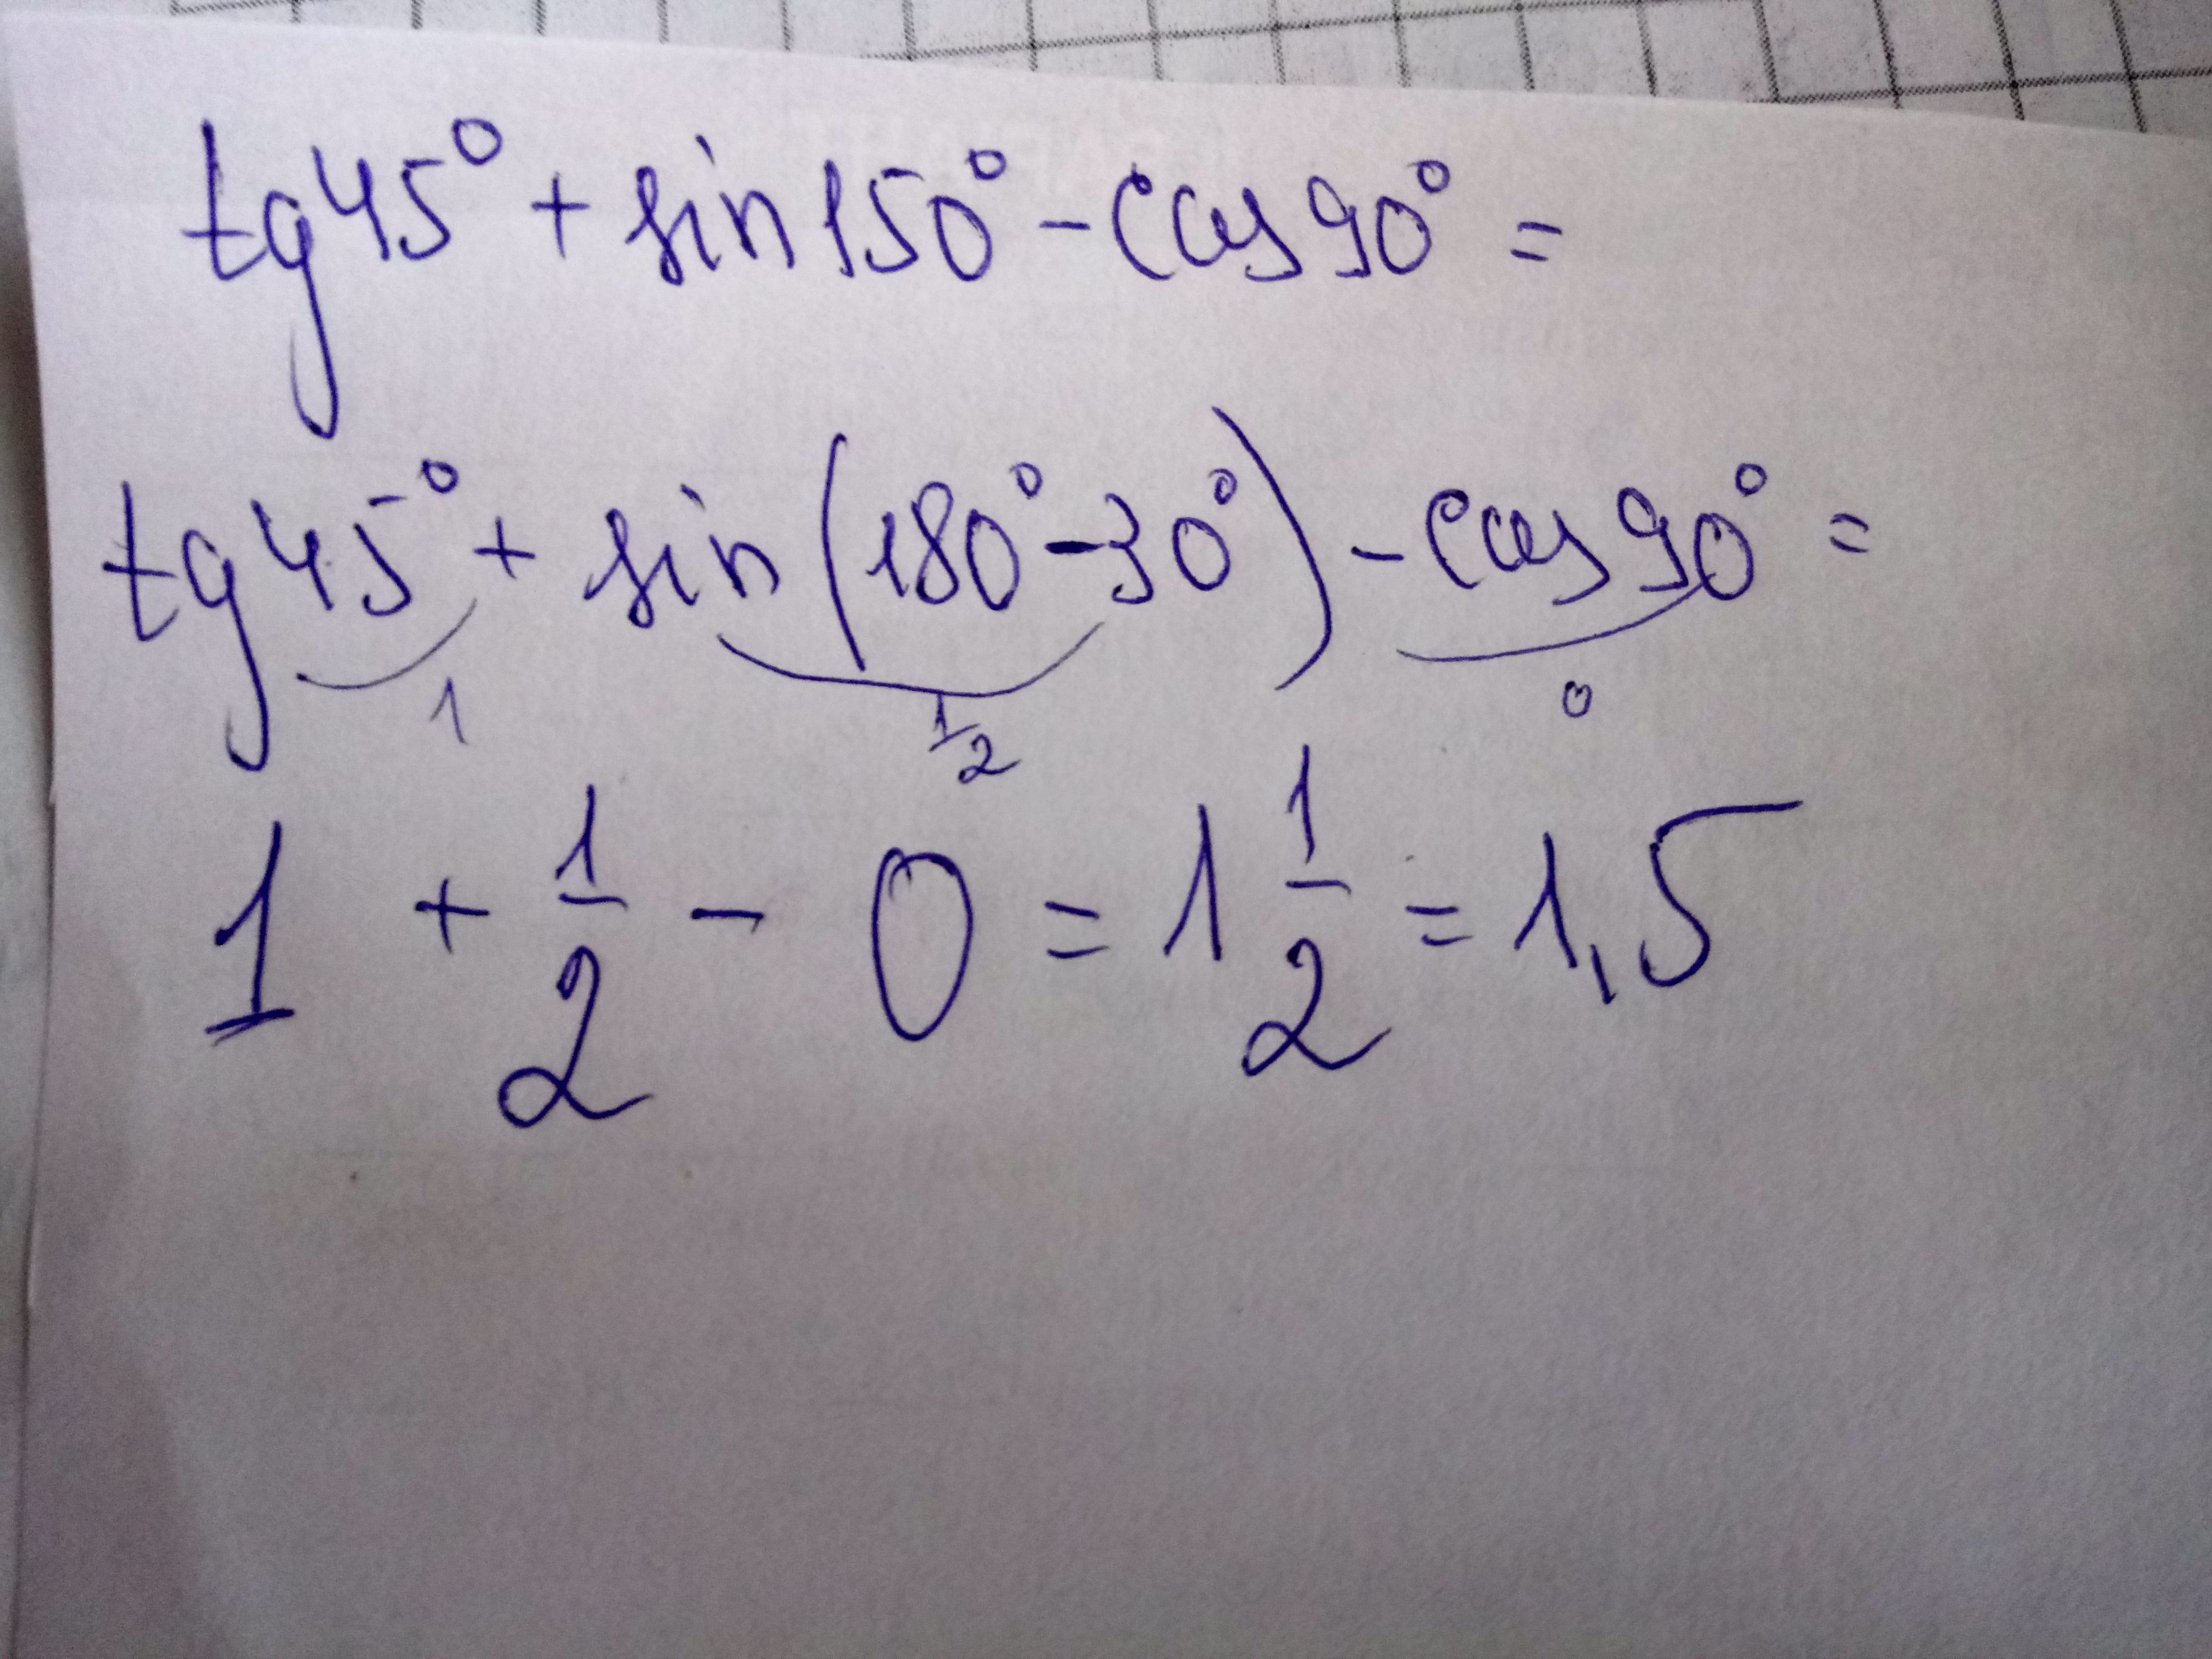 tg45° + sin150° - cos90° =
tg45° + sin(180° - 30°) - cos90° =
1 1/2 0
1 + 1/2 - 0 = 1 1/2 = 1,5